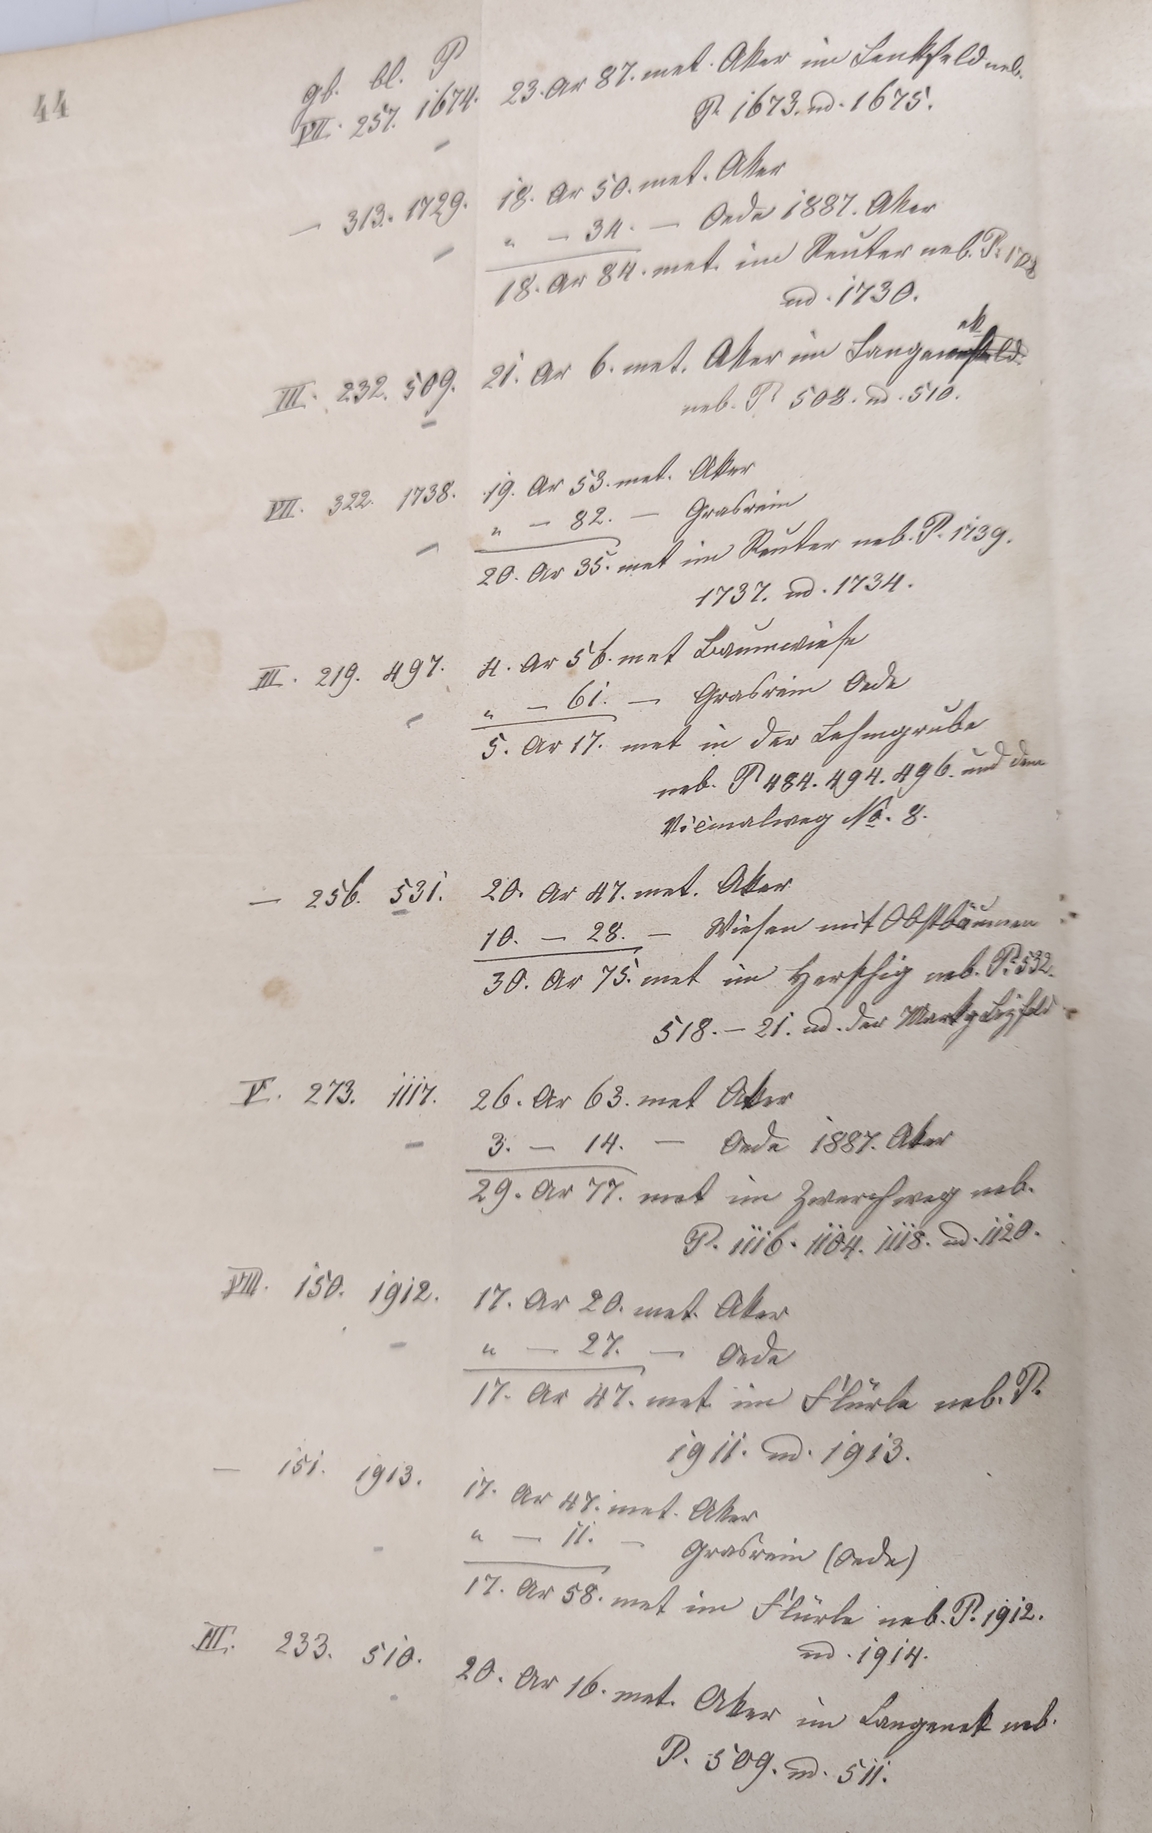 44
gb. bl. P
VII. 257. 1674. 23. Ar 87. met. Aker im Lenkfeld neb.
P. 1673. ud. 1675.
— 313. 1729. 18. Ar 50. met. Aker
" — 34. — Oede 1887. Aker
18. Ar 84. met. im Reuter neb. P. 1728
ud. 1730.
ek
III. 232. 509. 21. Ar 6. met. Aker im Langenfeld.
neb. P. 508. ud. 510.
VII. 322. 1738. 19. Ar 53. met. Aker
" — 82. — Grasrain
20. Ar 35. met im Reuter neb. P. 1739.
1737. ud. 1734.
III. 219. 497. 4. Ar 56. met Baumwiese
" — 61. — Grasrain Oede
5. Ar 17. met in der Lehmgrube
neb. P 484. 494. 496. und dem
Vicinalweg No. 8.
— 256. 531. 20. Ar 47. met. Aker
10. — 28. — Wiesen mit Obstbäumen
30. Ar 75. met im neb. P. 532.
518. — 21. ud. der Markg
V. 273. 1117. 26. Ar 63. met Aker
3. — 14. — Oede 1887. Aker
29. Ar 77. met im Zwerchweg neb.
P. 1116. 1104. 1118. ud. 1120.
VIII. 150. 1912. 17. Ar 20. met. Aker
" — 27. — Oede
17. Ar 47. met im Flürle neb. P.
1911. ud. 1913.
— 151. 1913. 17. Ar 47. met. Aker
" — 11. — Grasrain (Oede)
17. Ar 58. met im Flürle neb. P. 1912.
ud. 1914.
III. 233. 510. 20. Ar 16. met. Aker im Langenek neb.
P. 509. ud. 511.